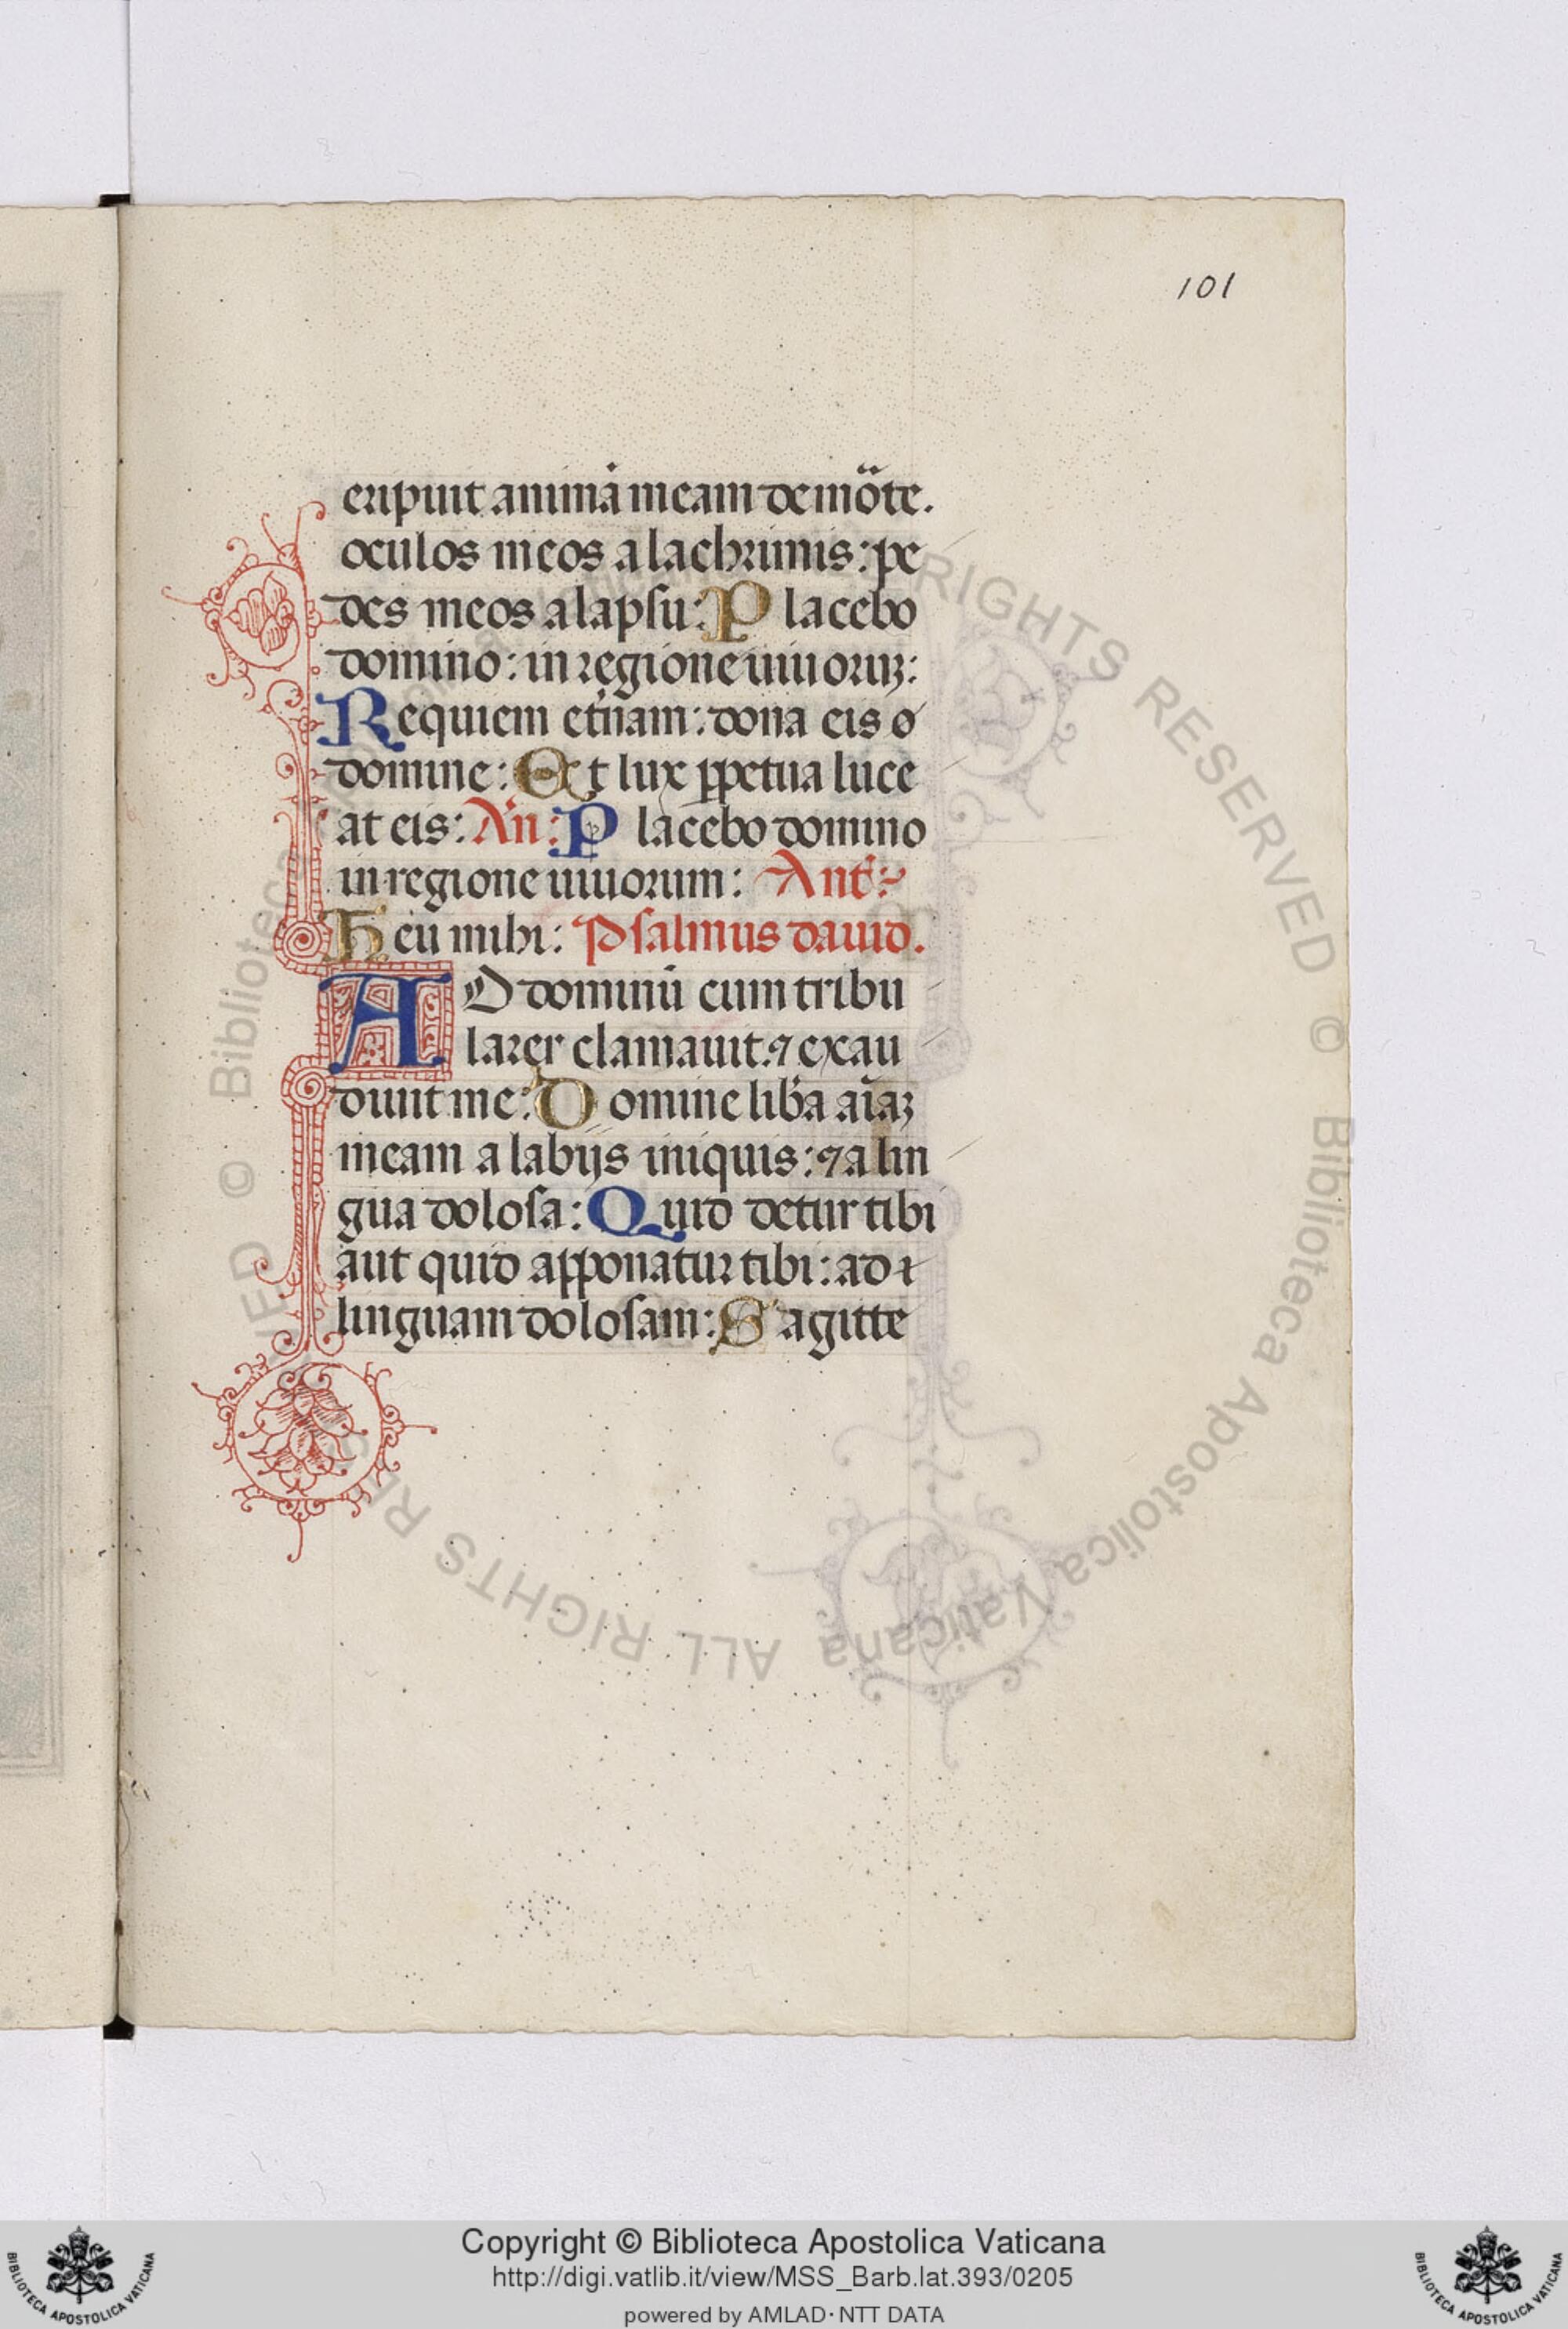 101
eripuit animā meam de mo̎te.
oculos meos a lachrimis: pe
des meos a lapsu: Placebo
domino: in regione uiuoruꝫ:
Requiem et̉nam: dona eis o
domine: Et lux ꝑpetua luce
at eis: An̄: Placebo domino
in regione uiuorum: Ant̄:
Heu mihi: Psalmus dauid.
AD dominū cum tribu
larer clamauit. ⁊ exau
diuit me: Domine lib̉a aīaꝫ
meam a labijs iniquis: ⁊ a lin
gua dolosa: Quid detur tibi
aut quid apponatur tibi: ad
linguam dolosam: Sagitte
© Biblioteca Apostolica Vaticana ALL RIGHTS RESERVED
Copyright © Biblioteca Apostolica Vaticana
http://digi.vatlib.it/view/MSS_Barb.lat.393/0205
powered by AMLAD·NTT DATA
BIBLIOTECA APOSTOLICA VATICANA
BIBLIOTECA APOSTOLICA VATICANA